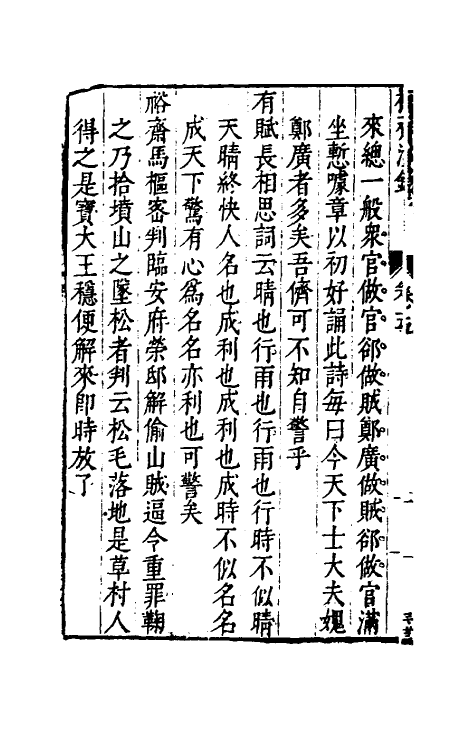 來總一般衆官做官郤做賊鄭廣做賊郤做官滿
坐慙噱章以初好誦此詩每曰今天下士大夫媿
鄭廣者多矣吾儕可不知自警乎
有賦長相思詞云晴也行雨也行雨也行時不似晴
天晴終快人名也成利也成利也成時不似名名
成天下驚有心爲名名亦利也可警矣
裕齋馬樞宻判臨安府榮邸解偷山賊逼令重罪鞠
之乃拾墳山之墜松者判云松毛落地是草村人
得之是寶大王穩便解來卽時放了